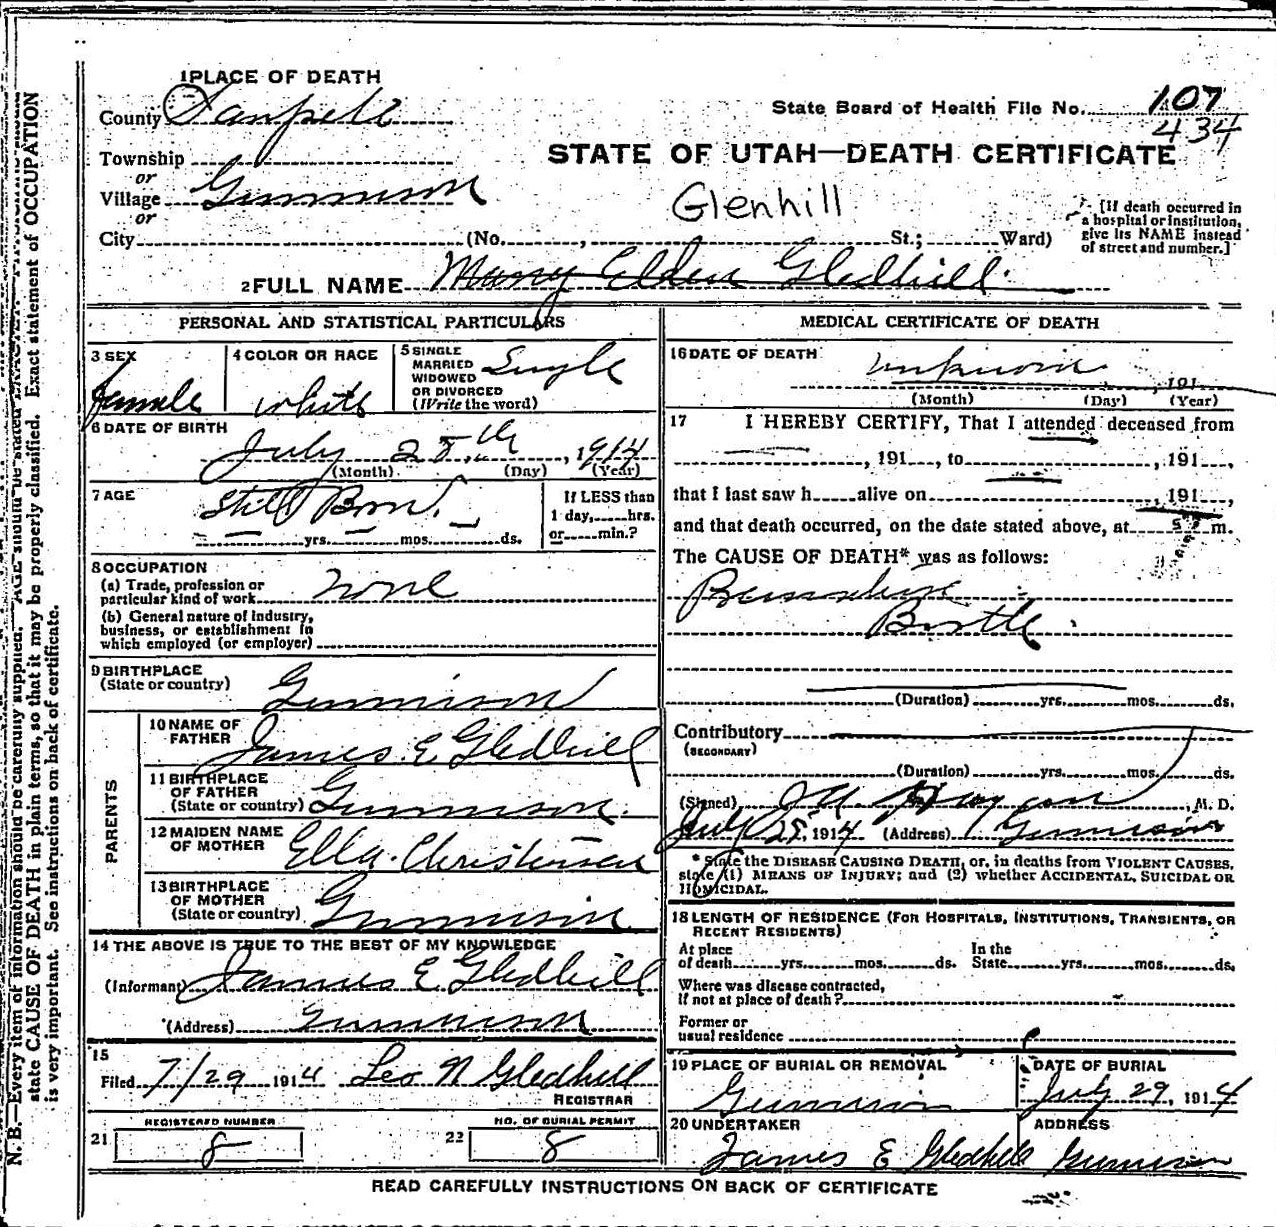 1 PLACE OF DEATH
County Sanpete
State Board of Health File No. 107
434
Township
or
Village Gunnison
or
STATE OF UTAH—DEATH CERTIFICATE
Glenhill
City (No. , St.; Ward)
[If death occurred in
a hospital or institution,
give its NAME instead
of street and number.]
2 FULL NAME Elden Gledhill
PERSONAL AND STATISTICAL PARTICULARS
3 SEX
female
4 COLOR OR RACE
white
5 SINGLE
MARRIED
WIDOWED
OR DIVORCED
(Write the word)
Single
6 DATE OF BIRTH
July 28th, 1914
(Month) (Day) (Year)
7 AGE
Still Born
yrs. mos. ds.
If LESS than
1 day, hrs.
or min.?
8 OCCUPATION
(a) Trade, profession or
particular kind of work none
(b) General nature of industry,
business, or establishment in
which employed (or employer)
9 BIRTHPLACE
(State or country) Gunnison
PARENTS
10 NAME OF
FATHER James E Gledhill
11 BIRTHPLACE
OF FATHER
(State or country) Gunnison.
12 MAIDEN NAME
OF MOTHER Ella Christensen
13 BIRTHPLACE
OF MOTHER
(State or country) Gunnison
14 THE ABOVE IS TRUE TO THE BEST OF MY KNOWLEDGE
(Informant) James E Gledhill
(Address) Gunnison
15
Filed 7/29 1914 Leo N Gledhill
REGISTRAR
21 REGISTERED NUMBER
8
22 NO. OF BURIAL PERMIT
8
MEDICAL CERTIFICATE OF DEATH
16 DATE OF DEATH
unknown , 191
(Month) (Day) (Year)
17 I HEREBY CERTIFY, That I attended deceased from
, 191 , to , 191 ,
that I last saw h alive on , 191 ,
and that death occurred, on the date stated above, at 5 m.
The CAUSE OF DEATH* was as follows:
Birth
(Duration) yrs. mos. ds.
Contributory
(SECONDARY)
(Duration) yrs. mos. ds.
(Signed) , M. D.
July 28, 1914 (Address) Gunnison
* State the DISEASE CAUSING DEATH, or, in deaths from VIOLENT CAUSES,
state (1) MEANS OF INJURY; and (2) whether ACCIDENTAL, SUICIDAL OR
HOMICIDAL.
18 LENGTH OF RESIDENCE (FOR HOSPITALS, INSTITUTIONS, TRANSIENTS, OR
RECENT RESIDENTS)
At place In the
of death yrs. mos. ds. State yrs. mos. ds.
Where was disease contracted,
if not at place of death?
Former or
usual residence
19 PLACE OF BURIAL OR REMOVAL
Gunnison
DATE OF BURIAL
July 29, 1914
20 UNDERTAKER
James E Gledhill
ADDRESS
Gunnison
READ CAREFULLY INSTRUCTIONS ON BACK OF CERTIFICATE
N. B.—Every item of information should be carefully supplied. AGE should be stated EXACTLY. PHYSICIANS should
state CAUSE OF DEATH in plain terms, so that it may be properly classified. Exact statement of OCCUPATION
is very important. See instructions on back of certificate.